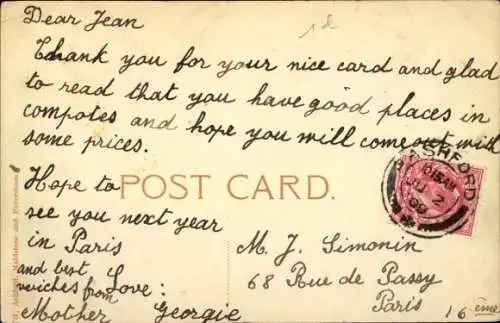 Dear Jean
1d
Thank you for your nice card and glad
to read that you have good places in
compotes and hope you will come out with
some prices.
Hope to
see you next year
in Paris
and best Love:
veiches from
Mother Georgie
POST CARD.
ASHFORD
JU 2
09
M. J. Simonin
68 Rue de Passy
Paris
16ème